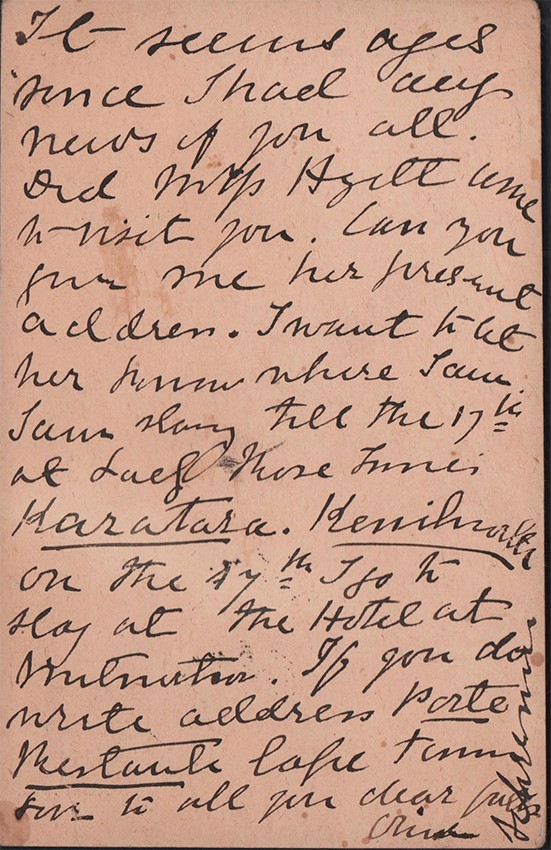 It seems ages
since I had any
news of you all.
Did Miss Hyett come
to visit you. Can you
give me her present
address. I want to let
her know where I am.
I am stay till the 17th
at Lady Rose Innes
Karatara. Kenilworth
on the 17th I go to
stay at the Hotel at
. If you do
write address Porte
Restante Cape Town
to all you dear
Olive
Schreiner